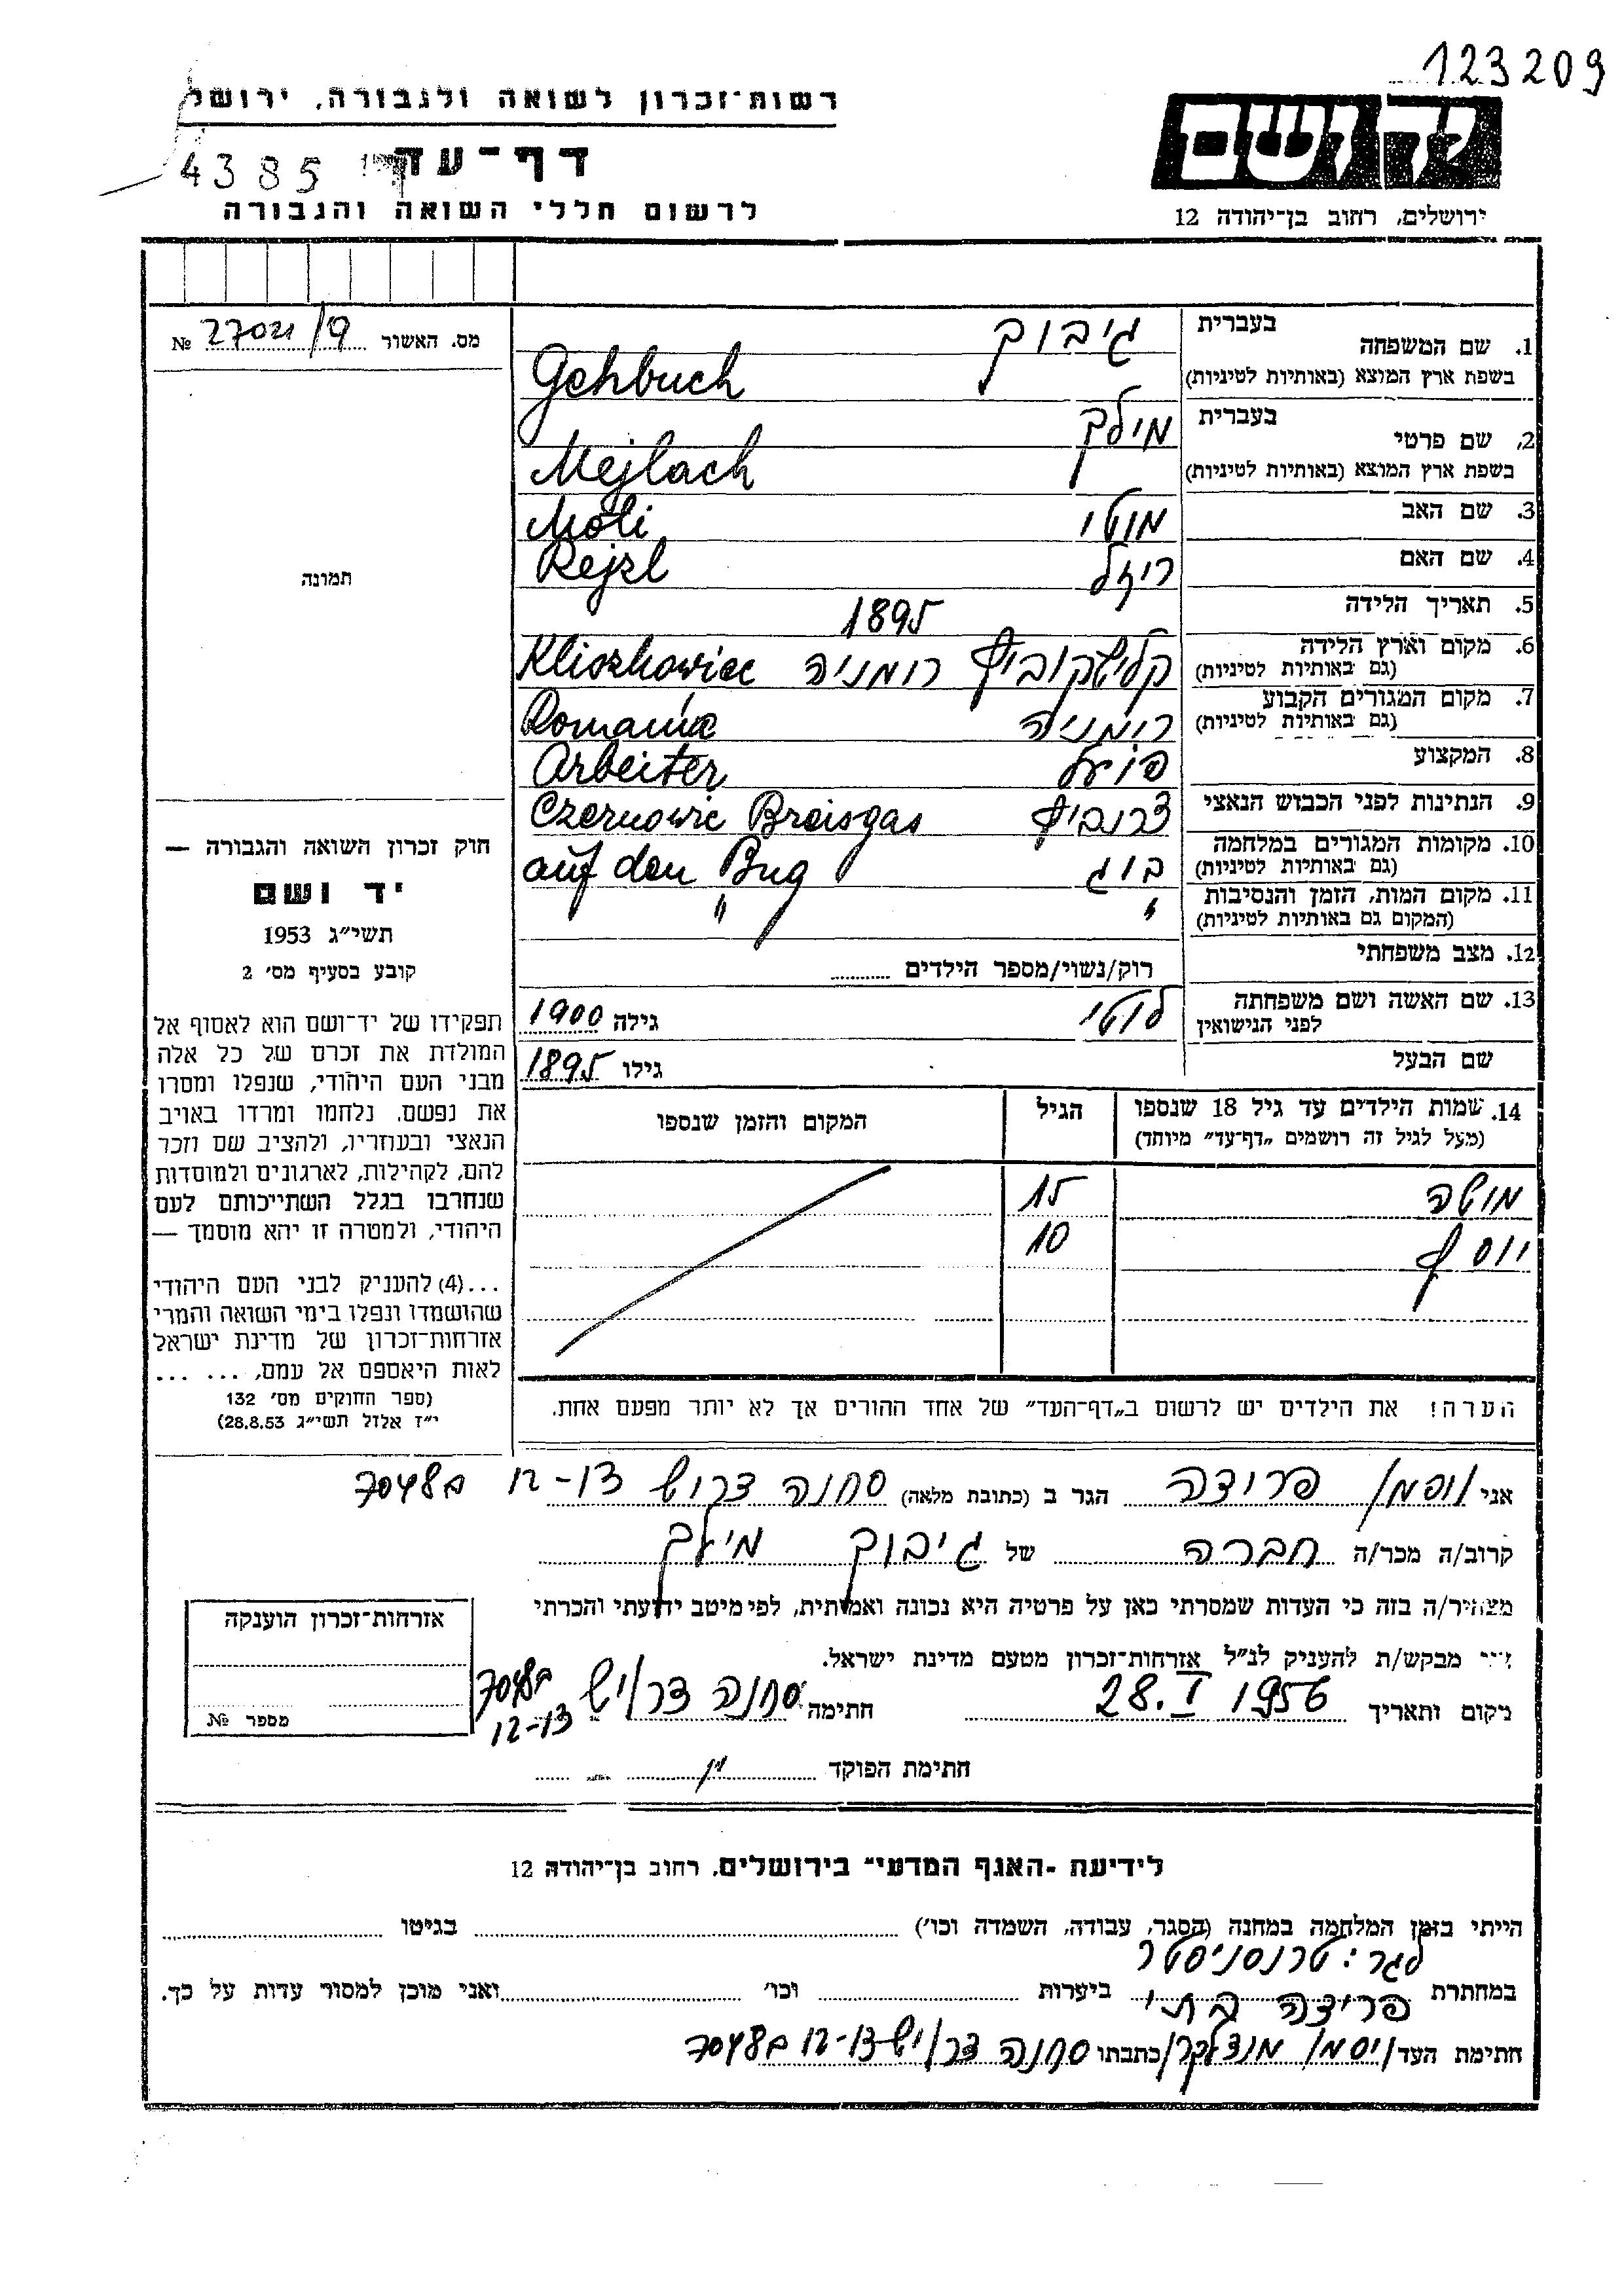 123209
רשות־זכרון לשואה ולגבורה, ירושל
דף־עד
4385
לרשום חללי השואה והגבורה
יד ושם
ירושלים, רחוב בן־יהודה 12
מס. האשור 27021/9 №
תמונה
1. שם המשפחה
בעברית גיבוך
בשפת ארץ המוצא (באותיות לטיניות) Gehbuch
2. שם פרטי
בעברית מילך
בשפת ארץ המוצא (באותיות לטיניות) Mejlach
3. שם האב מוטי Moti
4. שם האם ריזל Rejzl
5. תאריך הלידה 1895
6. מקום וארץ הלידה
(גם באותיות לטיניות) קלישקוביץ רומניה Kliszkowiec
7. מקום המגורים הקבוע
(גם באותיות לטיניות) רומניה Romania
8. המקצוע פועל Arbeiter
9. הנתינות לפני הכבוש הנאצי צרנוביץ Czernowic
10. מקומות המגורים במלחמה
(גם באותיות לטיניות) בוג auf den Bug
11. מקום המות, הזמן והנסיבות
(המקום גם באותיות לטיניות) " "
12. מצב משפחתי רוק/נשוי/מספר הילדים
13. שם האשה ושם משפחתה
לפני הנישואין לוטי גילה 1900
שם הבעל גילו 1895
14. שמות הילדים עד גיל 18 שנספו
(מעל לגיל זה רושמים „דף־עד” מיוחד)
הגיל
המקום והזמן שנספו
משה 15
יוסף 10
הערה! את הילדים יש לרשום ב„דף־העד” של אחד ההורים אך לא יותר מפעם אחת.
חוק זכרון השואה והגבורה —
יד ושם
תשי״ג 1953
קובע בסעיף מס׳ 2
תפקידו של יד־ושם הוא לאסוף אל
המולדת את זכרם של כל אלה
מבני העם היהודי, שנפלו ומסרו
את נפשם, נלחמו ומרדו באויב
הנאצי ובעוזריו, ולהציב שם וזכר
להם, לקהילות, לארגונים ולמוסדות
שנחרבו בגלל השתייכותם לעם
היהודי, ולמטרה זו יהא מוסמך —
...(4) להעניק לבני העם היהודי
שהושמדו ונפלו בימי השואה והמרי
אזרחות־זכרון של מדינת ישראל
לאות היאספם אל עמם, ... ...
(ספר החוקים מס׳ 132
י״ז אלול תשי״ג 28.8.53)
אני פרידה הגר ב (כתובת מלאה) 12-13
קרוב/ה מכר/ה חברה של גיבוך מילך
מצהיר/ה בזה כי העדות שמסרתי כאן על פרטיה היא נכונה ואמיתית, לפי מיטב ידיעתי והכרתי
אני מבקש/ת להעניק לנ״ל אזרחות־זכרון מטעם מדינת ישראל.
מקום ותאריך 28. I 1956 חתימה
12-13
חתימת הפוקד
אזרחות־זכרון הוענקה
מספר №
לידיעת -האגף המדעי״ בירושלים, רחוב בן־יהודה 12
הייתי בזמן המלחמה במחנה (הסגר, עבודה, השמדה וכו׳) בגיטו
לגר: טרנסניסטר
במחתרת ביערות וכו׳ ואני מוכן למסור עדות על כך.
חתימת העד כתבתו 12-13